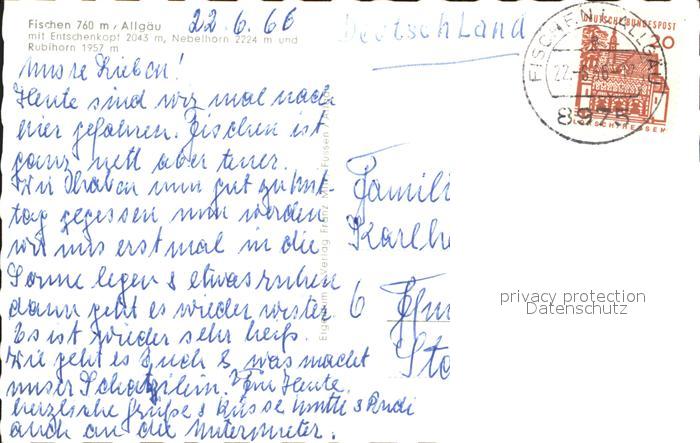 Fischen 760 m / Allgäu
mit Entschenkopf 2043 m, Nebelhorn 2224 m und
Rubihorn 1957 m
22.6.66
Deutschland
DEUTSCHE BUNDESPOST
20
FISCHEN I. ALLGÄU
8975
Unsre Lieben!
Heute sind wir mal nach
hier gefahren. Fischen ist
ganz nett aber teuer.
Wir haben nun gut zu Mit-
tag gegessen nun werden
wir uns erst mal in die
Sonne legen & etwas ruhen
dann geht es wieder weiter
Es ist wieder sehr heiß.
Wie geht es Euch & was macht
unser Schatzilein. Für Heute
herzliche Grüße & Küsse & Rudi
auch an die Untermieter.
Famili
Karlh
6
Sta
privacy protection
Datenschutz